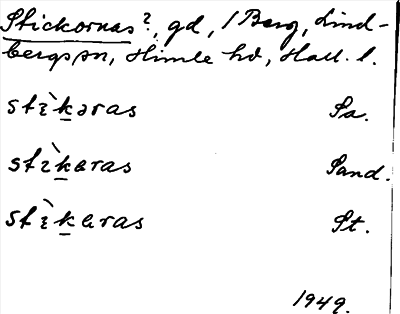 Stickornas?, gd, 1 Berg, Lind-
bergs sn, Himle hd, Hall. l.
stɪ̀kəras Sa.
stɪ̀kɐras Sand.
stɪ̀kɐras St.
1949.